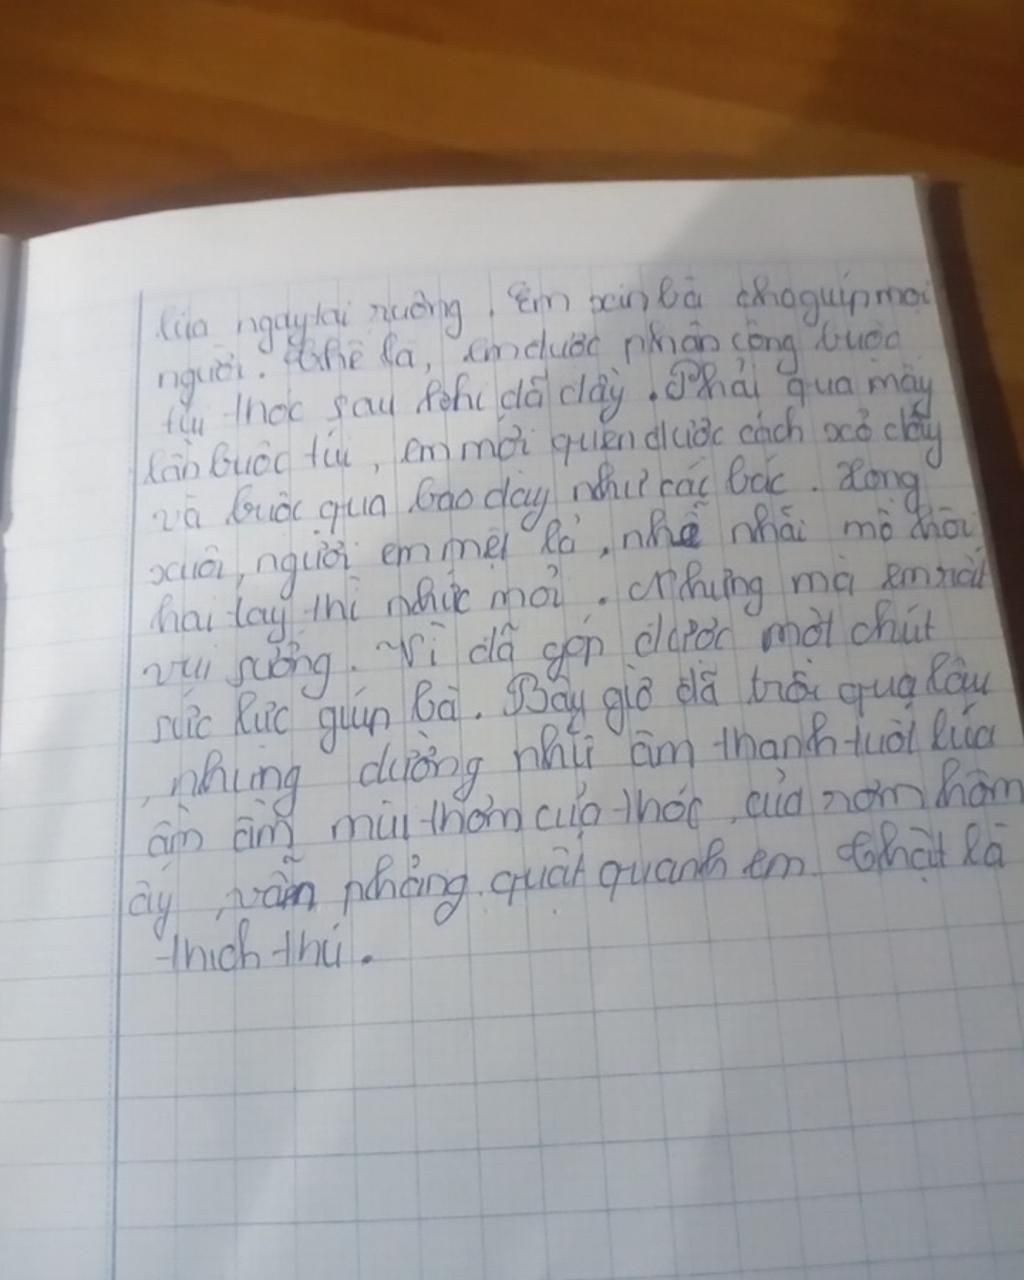 lúa ngay tại ruộng. Em xin bà cho giúp mọi
người. Thế là, em được phân công buộc
túi thóc sau khi đã đầy. Phải qua mấy
lần buộc túi, em mới quen được cách xỏ dây
và buộc qua bao dày như các bác. Xong
xuôi, người em mệt lả, nhễ nhãi mồ hôi
hai tay thì nhức mỏi. Nhưng mà em rất
vui sướng. Vì đã góp được một chút
sức lực giúp bà. Bây giờ đã trôi qua lâu
, nhưng dường như âm thanh tuốt lúa
ầm ầm mùi thơm của thóc, của rơm hôm
ấy, vẫn phảng quất quanh em. Thật là
thích thú.